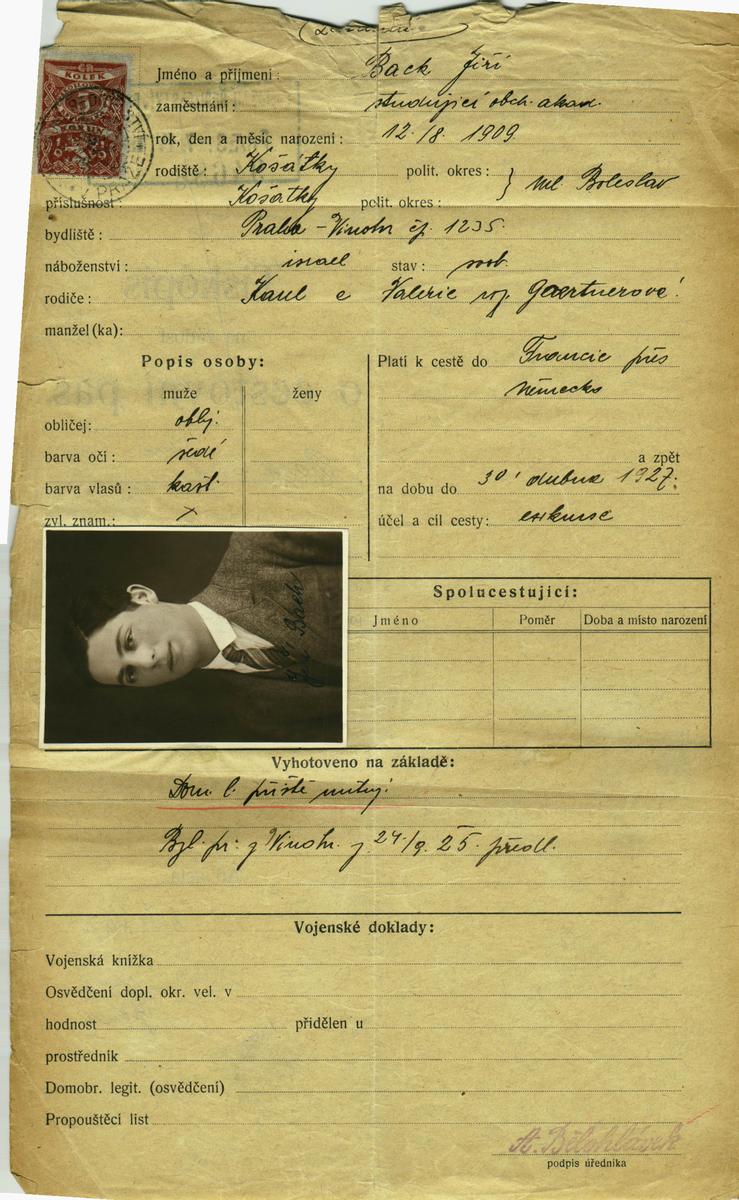 ČR
KOLEK
V PRAZE
Jméno a příjmení: Back Jiří
zaměstnání: studující obch. akad.
rok, den a měsíc narození: 12./8. 1909.
rodiště: Košátky polit. okres: } Ml. Boleslav
příslušnost: Košátky polit. okres:
bydliště: Praha - Vinohr. čp. 1235.
náboženství: israel stav: svob.
rodiče: Karel a Valerie roz. Gaertnerová.
manžel (ka):
Popis osoby: Platí k cestě do Francie přes
muže ženy Německo
obličej: oblý.
barva očí: šedé a zpět
barva vlasů: kašt. na dobu do 30. dubna 1927.
zvl. znam.: × účel a cíl cesty: exkurse
Jiří Back
Spolucestující:
Jméno Poměr Doba a místo narození
Vyhotoveno na základě:
Dom. l. příště nutný!
Byl. př. z Vinohr. z 24/9. 25. předl.
Vojenské doklady:
Vojenská knížka
Osvědčení dopl. okr. vel. v
hodnost přidělen u
prostředník
Domobr. legit. (osvědčení)
Propouštěcí list
A. Bělohlávek
podpis úředníka